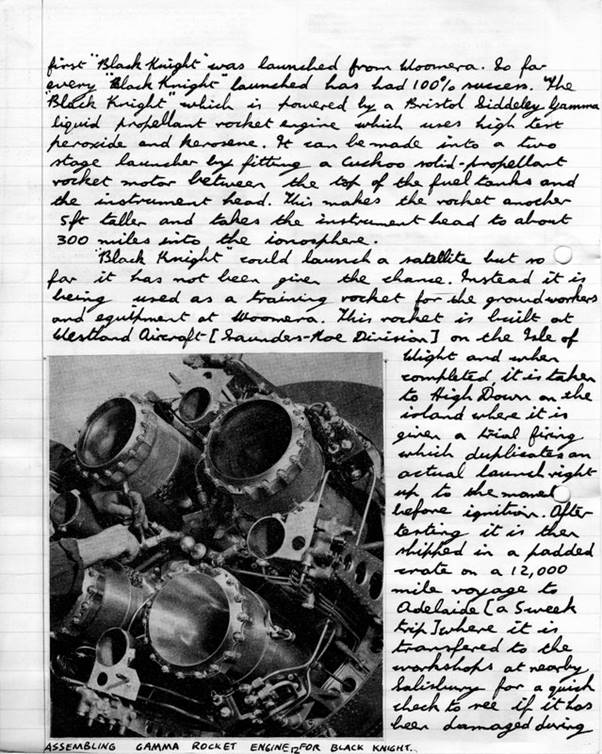 first "Black Knight" was launched from Woomera. So far
every "Black Knight" launched has had 100% success. The
"Black Knight" which is powered by a Bristol Siddeley Gamma
liquid propellant rocket engine which uses high test
peroxide and kerosene. It can be made into a two
stage launcher by fitting a Cuckoo solid-propellant
rocket motor between the top of the fuel tanks and
the instrument head. This makes the rocket another
5ft taller and takes the instrument head to about
300 miles into the ionosphere.
"Black Knight" could launch a satellite but so
far it has not been given the chance. Instead it is
being used as a training rocket for the groundworkers
and equiptment at Woomera. This rocket is built at
Westland Aircraft [Saunders-Roe Division] on the Isle of
Wight and when
completed, it is taken
to High Down on the
island where it is
given a trial firing
which duplicates an
actual launch right
up to the moment
before ignition. After
testing it is then
shipped in a padded
crate on a 12,000
mile voyage to
Adelaide [a 5 week
trip] where it is
transfered to the
workshops at nearby
Salisbury for a quick
check to see if it has
been damaged during
ASSEMBLING GAMMA ROCKET ENGINE FOR BLACK KNIGHT.
12